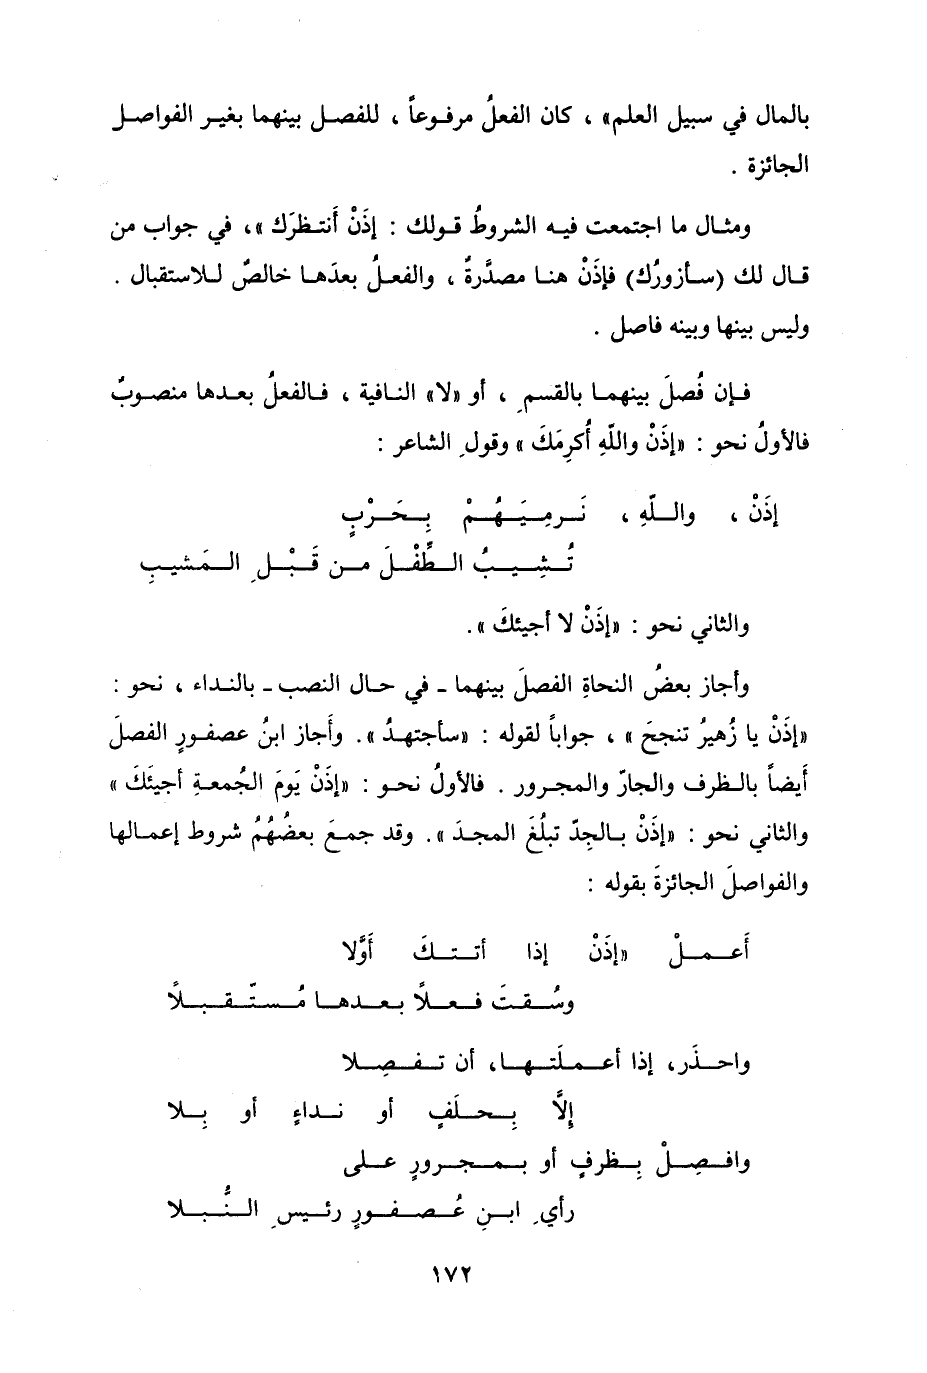 بالمال في سبيل العلم» ، كان الفعلُ مرفوعاً ، للفصل بينهما بغير الفواصل
الجائزة .
ومثال ما اجتمعت فيه الشروطُ قولك : إذَنْ أَنتظرَك »، في جواب من
قال لك (سأزورُك) فإذَنْ هنا مصدَّرةٌ ، والفعلُ بعدَها خالصٌ للاستقبال .
وليس بينها وبينه فاصل .
فإن فُصلَ بينهما بالقسمِ ، أو «لا» النافية ، فالفعلُ بعدها منصوبٌ
فالأولُ نحو : «إذَنْ واللّهِ أُكرِمَكَ » وقولِ الشاعر :
إذَنْ ، واللّهِ ، نَرمِيَهُمْ بِحَرْبٍ
تُشِيبُ الطِّفْلَ من قَبْلِ المَشيبِ
والثاني نحو : «إذَنْ لا أجيئكَ ».
وأجاز بعضُ النحاةِ الفصلَ بينهما - في حال النصب - بالنداء ، نحو :
«إذَنْ يا زُهيرُ تنجحَ » ، جواباً لقوله : «سأجتهدُ ». وأَجاز ابنُ عصفورٍ الفصلَ
أَيضاً بالظرف والجارّ والمجرور . فالأولُ نحو : «إذَنْ يَومَ الجُمعةِ أجيئَكَ »
والثاني نحو : «إذَنْ بالجِدّ تبلُغَ المجدَ ». وقد جمعَ بعضُهُمُ شروط إعمالها
والفواصلَ الجائزةَ بقوله :
أَعملْ «إذَنْ إذا أتتكَ أَوَّلا
وسُقتَ فعلاً بعدها مُستقبلاً
واحذَر، إذا أعملَتها، أن تفصِلا
إلَّا بِحلَفٍ أو نداءٍ أو بِلا
وافصِلْ بِظرفٍ أو بمجرورٍ على
رأيِ ابنِ عُصفورٍ رئيسِ النُّبلا
١٧٢